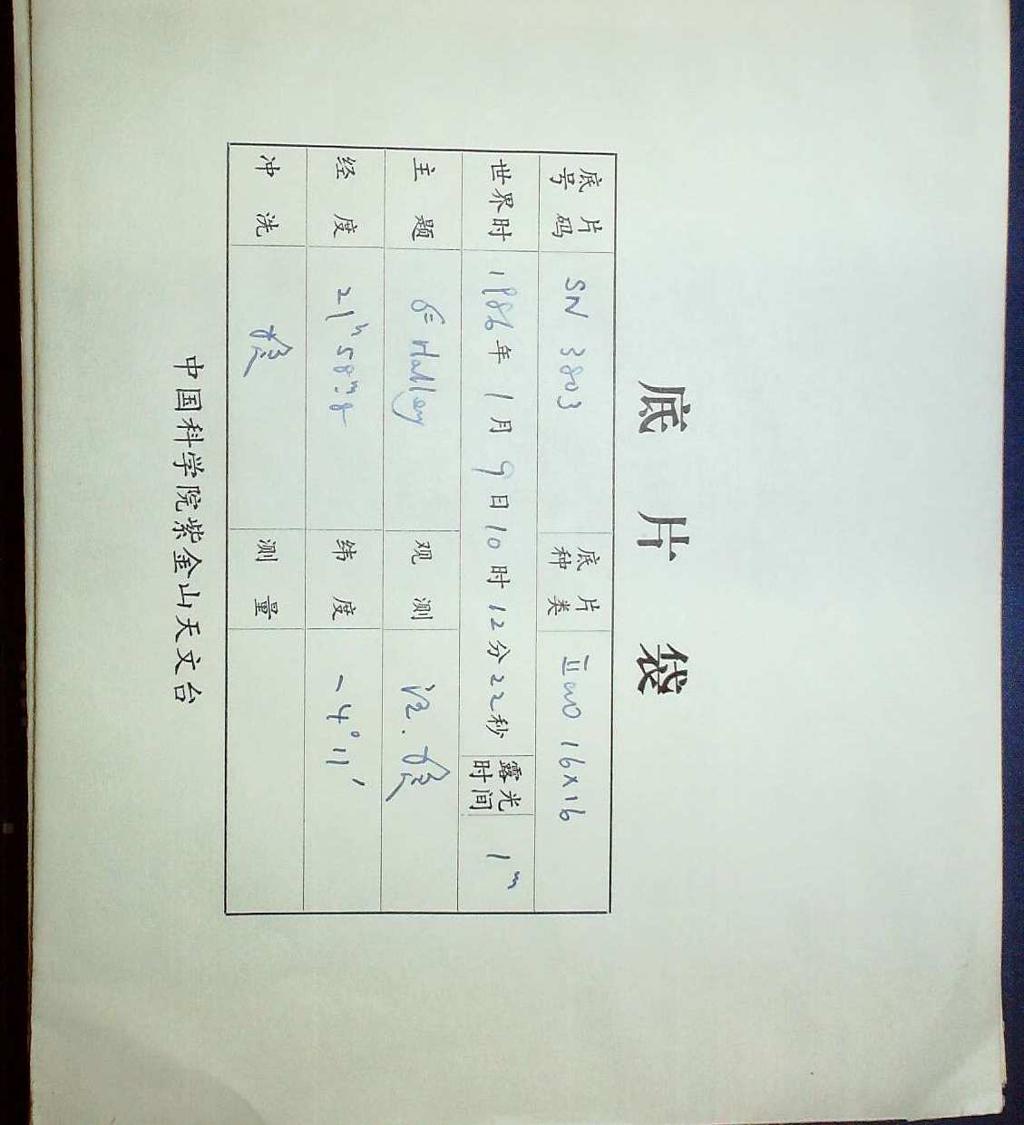 底片袋
底片号码 SN 3803 底片种类 IIaO 16×16
世界时 1986年1月9日10时12分22秒 露光时间 1m
主题 Halley 观测
经度 21h58m.8 纬度 -4°11′
冲洗 测量
中国科学院紫金山天文台